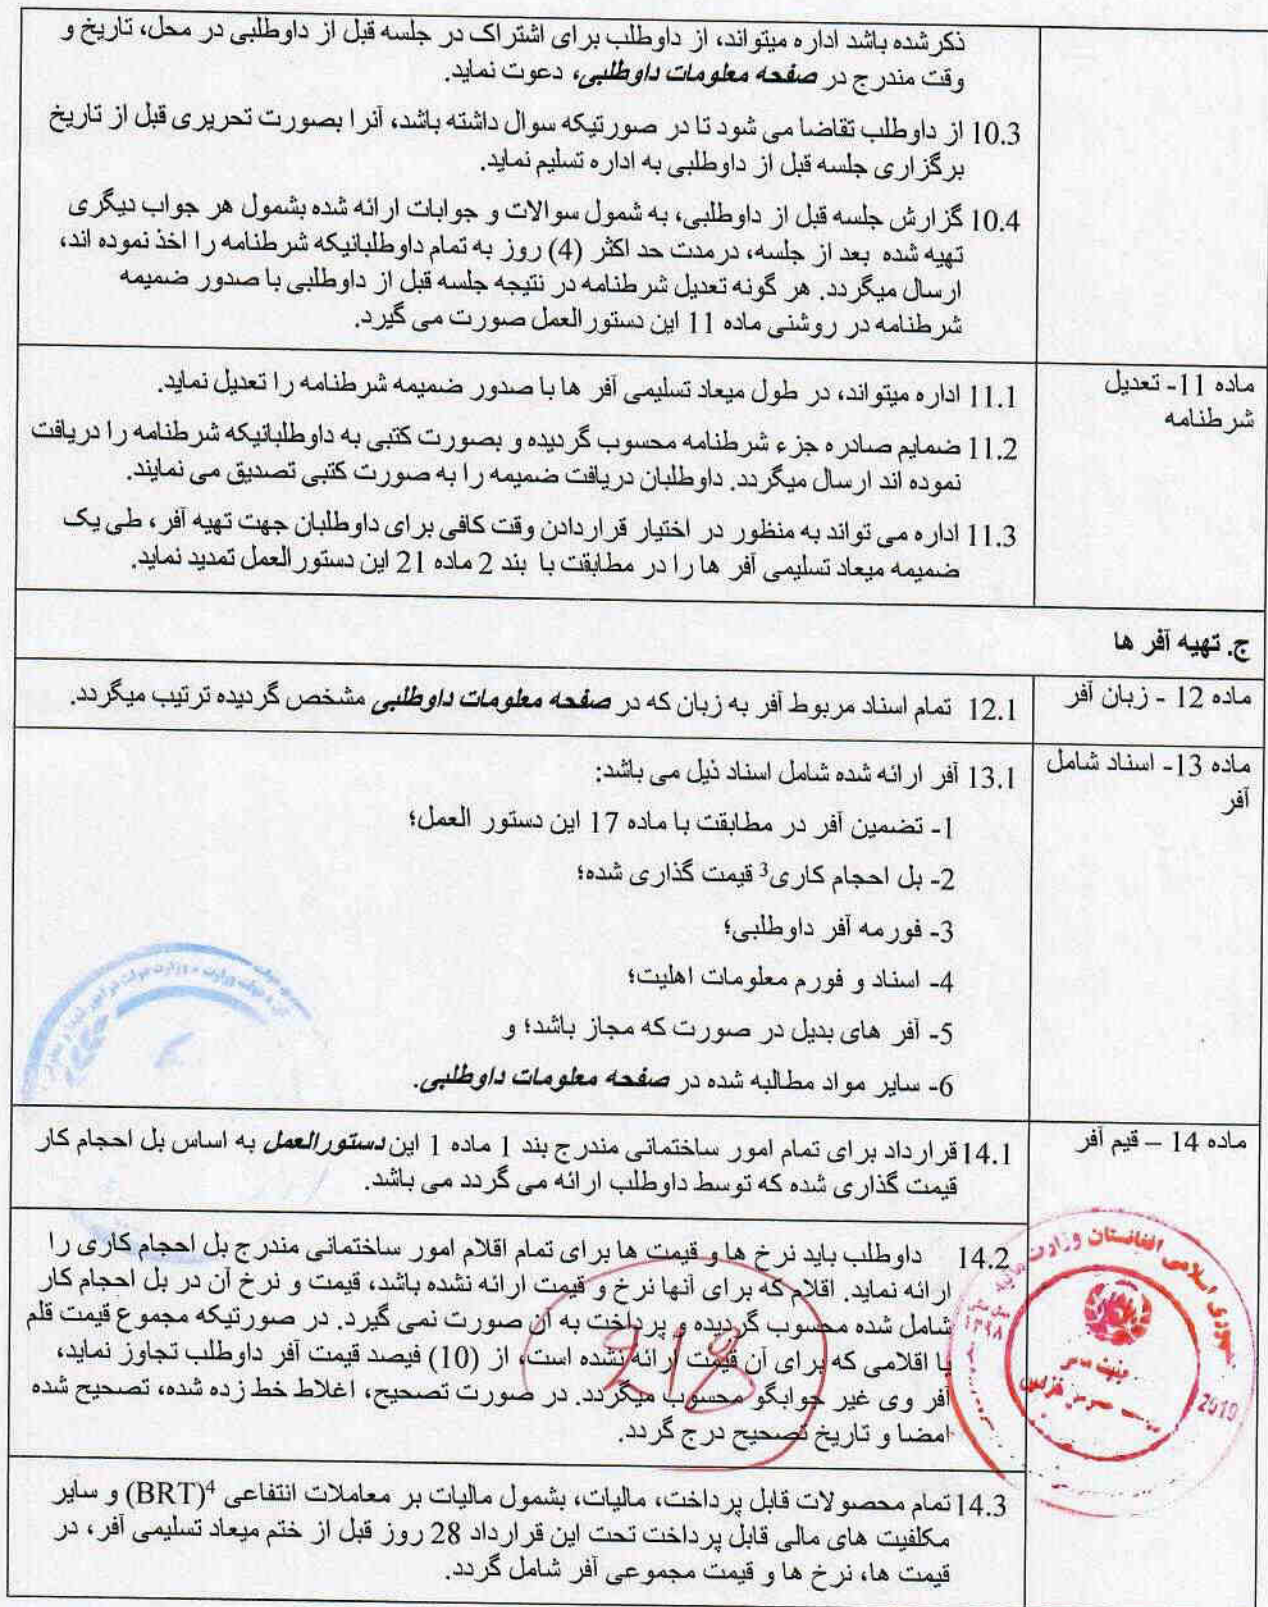 ذکرشده باشد اداره میتواند، از داوطلب برای اشتراک در جلسه قبل از داوطلبی در محل، تاریخ و
وقت مندرج در صفحه معلومات داوطلبی، دعوت نماید.
10.3 از داوطلب تقاضا می شود تا در صورتیکه سوال داشته باشد، آنرا بصورت تحریری قبل از تاریخ
برگزاری جلسه قبل از داوطلبی به اداره تسلیم نماید.
10.4 گزارش جلسه قبل از داوطلبی، به شمول سوالات و جوابات ارائه شده بشمول هر جواب دیگری
تهیه شده بعد از جلسه، درمدت حد اکثر (4) روز به تمام داوطلبانیکه شرطنامه را اخذ نموده اند،
ارسال میگردد. هر گونه تعدیل شرطنامه در نتیجه جلسه قبل از داوطلبی با صدور ضمیمه
شرطنامه در روشنی ماده 11 این دستورالعمل صورت می گیرد.
ماده 11- تعدیل
شرطنامه
11.1 اداره میتواند، در طول میعاد تسلیمی آفر ها با صدور ضمیمه شرطنامه را تعدیل نماید.
11.2 ضمایم صادره جزء شرطنامه محسوب گردیده و بصورت کتبی به داوطلبانیکه شرطنامه را دریافت
نموده اند ارسال میگردد. داوطلبان دریافت ضمیمه را به صورت کتبی تصدیق می نمایند.
11.3 اداره می تواند به منظور در اختیار قراردادن وقت کافی برای داوطلبان جهت تهیه آفر، طی یک
ضمیمه میعاد تسلیمی آفر ها را در مطابقت با بند 2 ماده 21 این دستورالعمل تمدید نماید.
ج. تهیه آفر ها
ماده 12 - زبان آفر
12.1 تمام اسناد مربوط آفر به زبان که در صفحه معلومات داوطلبی مشخص گردیده ترتیب میگردد.
ماده 13- اسناد شامل
آفر
13.1 آفر ارائه شده شامل اسناد ذیل می باشد:
1- تضمین آفر در مطابقت با ماده 17 این دستور العمل؛
2- بل احجام کاری3 قیمت گذاری شده؛
3- فورمه آفر داوطلبی؛
4- اسناد و فورم معلومات اهلیت؛
5- آفر های بدیل در صورت که مجاز باشد؛ و
6- سایر مواد مطالبه شده در صفحه معلومات داوطلبی.
ماده 14 – قیم آفر
14.1 قرارداد برای تمام امور ساختمانی مندرج بند 1 ماده 1 این دستورالعمل به اساس بل احجام کار
قیمت گذاری شده که توسط داوطلب ارائه می گردد می باشد.
14.2 داوطلب باید نرخ ها و قیمت ها برای تمام اقلام امور ساختمانی مندرج بل احجام کاری را
ارائه نماید. اقلام که برای آنها نرخ و قیمت ارائه نشده باشد، قیمت و نرخ آن در بل احجام کار
شامل شده محسوب گردیده و پرداخت به آن صورت نمی گیرد. در صورتیکه مجموع قیمت قلم
یا اقلامی که برای آن قیمت ارائه نشده است، از (10) فیصد قیمت آفر داوطلب تجاوز نماید،
آفر وی غیر جوابگو محسوب میگردد. در صورت تصحیح، اغلاط خط زده شده، تصحیح شده
امضا و تاریخ تصحیح درج گردد.
218
افغانستان وزارت
2019
۱۳۹۸
14.3 تمام محصولات قابل پرداخت، مالیات، بشمول مالیات بر معاملات انتفاعی 4(BRT) و سایر
مکلفیت های مالی قابل پرداخت تحت این قرارداد 28 روز قبل از ختم میعاد تسلیمی آفر، در
قیمت ها، نرخ ها و قیمت مجموعی آفر شامل گردد.